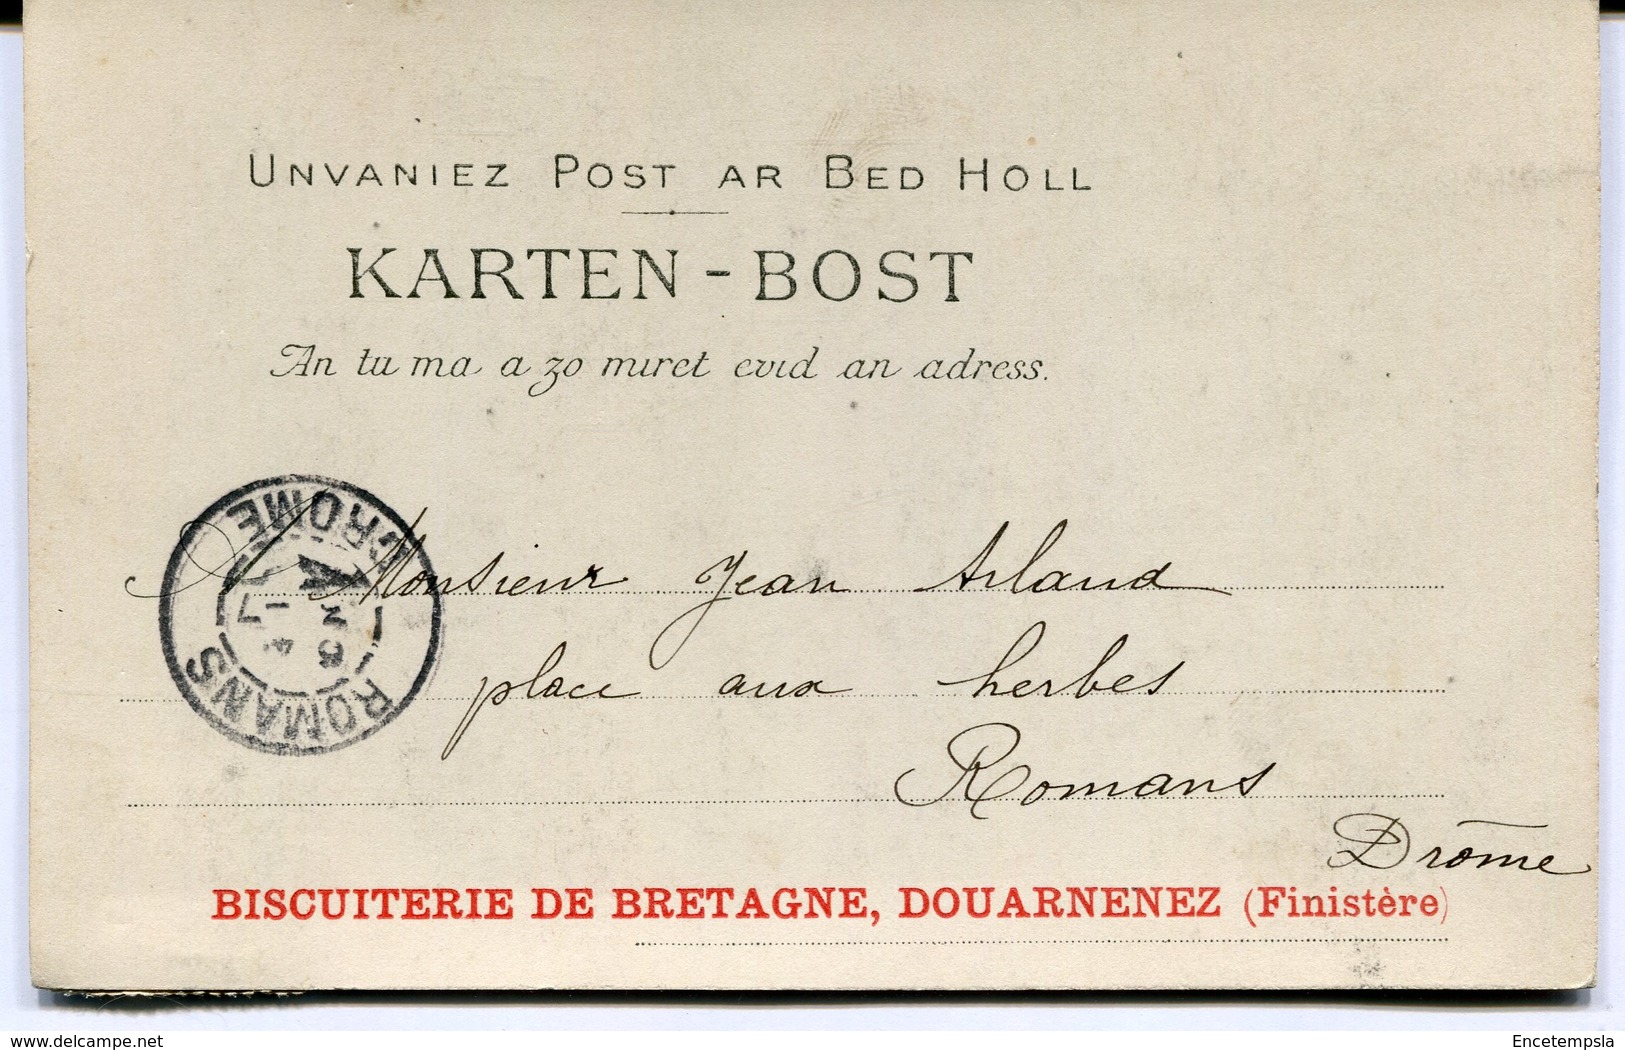 UNVANIEZ POST AR BED HOLL
KARTEN-BOST
An tu ma a zo miret evid an adress.
ROMANS
DROME
Monsieur Jean Arland
place aux herbes
Romans
Drôme
BISCUITERIE DE BRETAGNE, DOUARNENEZ (Finistère)
delcampe.net
Encetempsla